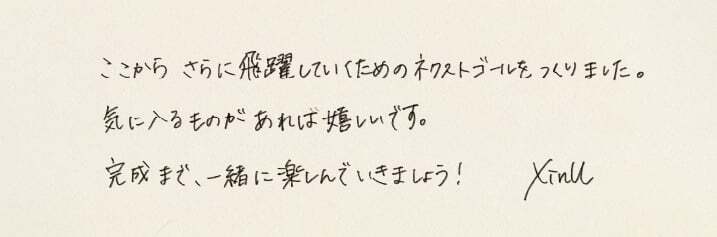 ここから さらに飛躍していくためのネクストゴールをつくりました。
気に入るものがあれば嬉しいです。
完成まで、一緒に楽しんでいきましょう! XinU